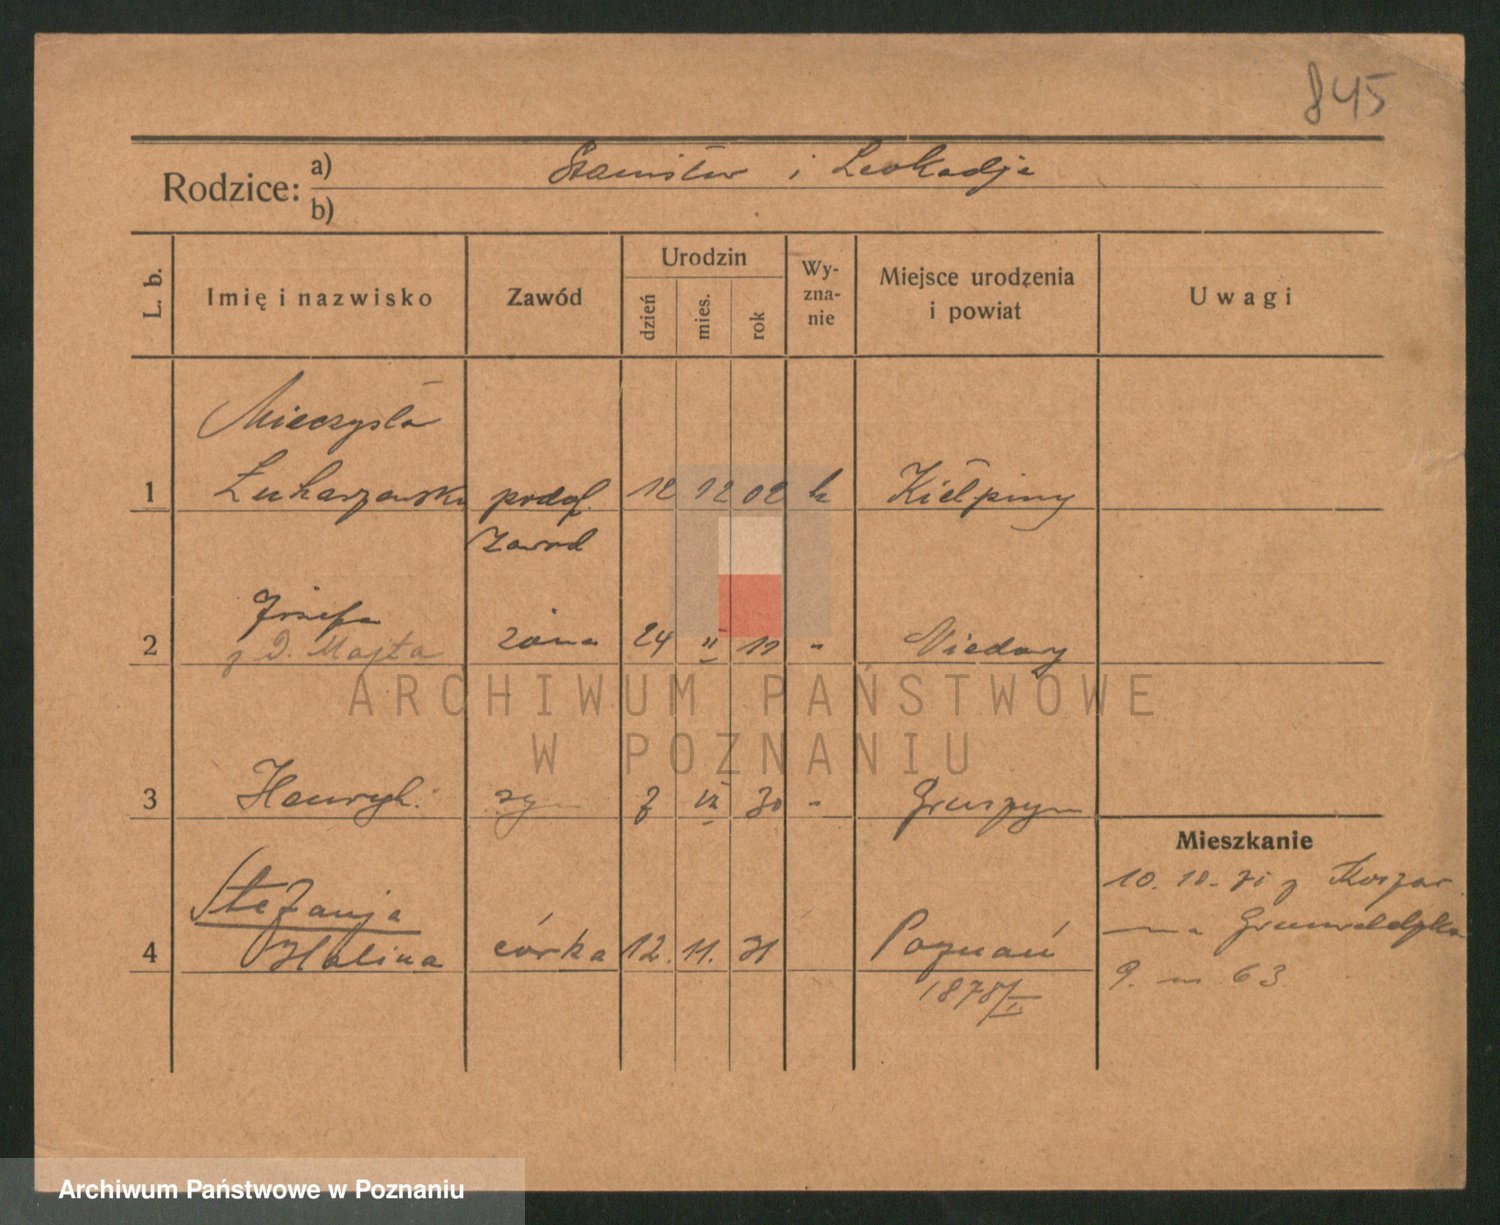 845
Rodzice: a) Stanisław i Leokadja
b)
L. b.
Imię i nazwisko
Zawód
Urodzin
dzień
mies.
rok
Wy-
zna-
nie
Miejsce urodzenia
i powiat
Uwagi
Mieczysła
1 Łukaszewski podof. 12 12 02 k Kiełpiny
zawod
Józefa
2 z D. Majta żona 24 II 11 - Niedary
3 Henryk syn 7 IX 30 -
Mieszkanie
10. 10. 31 z Koszar
Stefanja
4 Halina córka 12. 11. 31 Poznań
Grunwaldzka
1878/II
9. m 63
ARCHIWUM PAŃSTWOWE
W POZNANIU
Archiwum Państwowe w Poznaniu